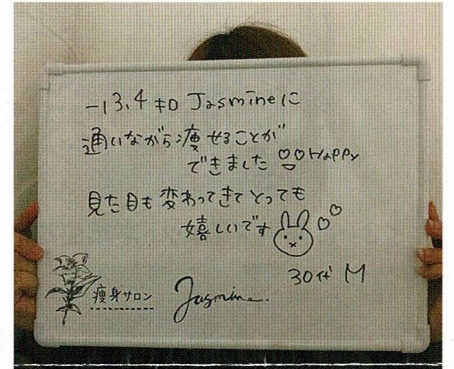 -13.4キロ Jasmineに
通いながら痩せることが
できました Happy
見た目も変わってきてとっても
嬉しいです
30代 M
痩身サロン Jasmine.